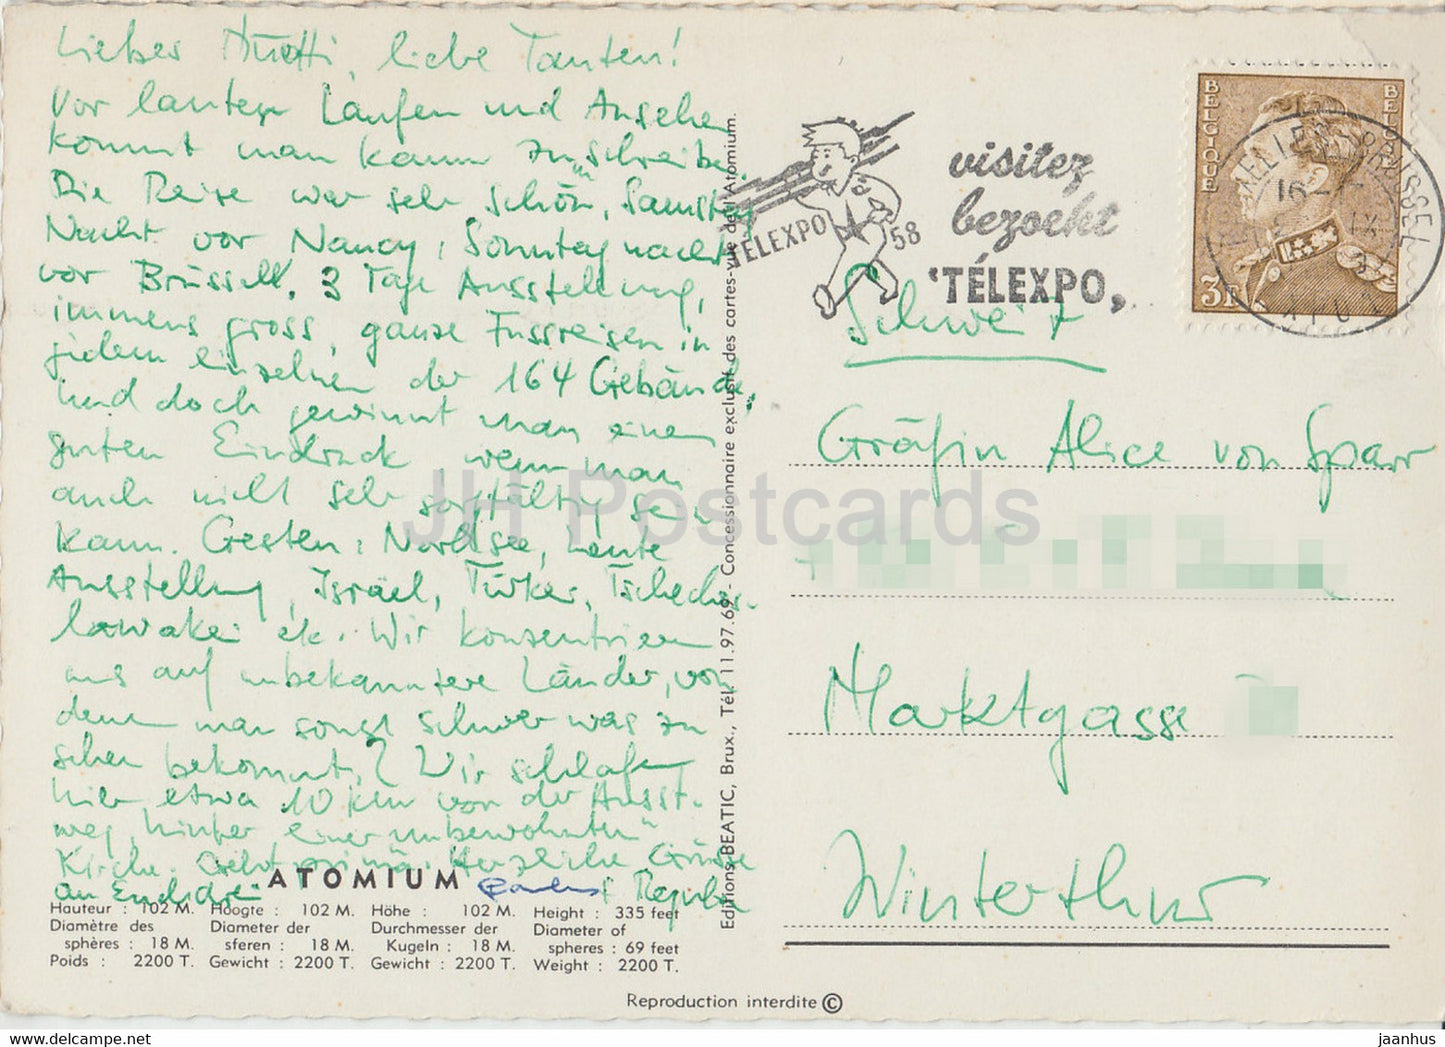 Lieber Muotti, liebe Tanten!
Vor lauter Laufen und Ansehen
kommt man kaum zu "Schreiben.
Die Reise war sehr schön, Samstag
Nacht vor Nancy, Sonntag nacht
vor Brüssell. 3 Tage Ausstellung,
immens gross, ganze Fussreisen in
jedem einzelnen der 164 Gebäude,
und doch gewinnt man einen
guten Eindruck, wenn man
auch nicht sehr sorgfältig sein
kann. Gestern: Nordsee, heute
Ausstellung, Israel, Türkei, Tschechos-
lowakei etc. Wir konzentrieren
uns auf unbekanntere Länder, von
denen man sonst schwer was zu
sehen bekommt. Wir schlafen
hier etwa 10 km von der Ausst.
weg, hinter einer "unbewohnten"
Kirche. Geht prima. Herzliche Grüsse
an Euch drei
ATOMIUM
Hauteur : 102 M. Hoogte : 102 M. Höhe : 102 M. Height : 335 feet
Diamètre des Diameter der Durchmesser der Diameter of
sphères : 18 M. sferen : 18 M. Kugeln : 18 M. spheres : 69 feet
Poids : 2200 T. Gewicht : 2200 T. Gewicht : 2200 T. Weight : 2200 T.
Reproduction interdite ©
Editions BEATIC, Brux., Tél. 11.97.69 - Concessionnaire exclusif des cartes-vue de l'Atomium.
TÉLEXPO 58
visitez
bezoekt
'TÉLEXPO,
BELGIQUE
3F
BRUXELLES BRUSSEL
16
IX
Schweiz
Gräfin Alice von Sparr
Marktgasse
Winterthur
JH Postcards
jaanhus